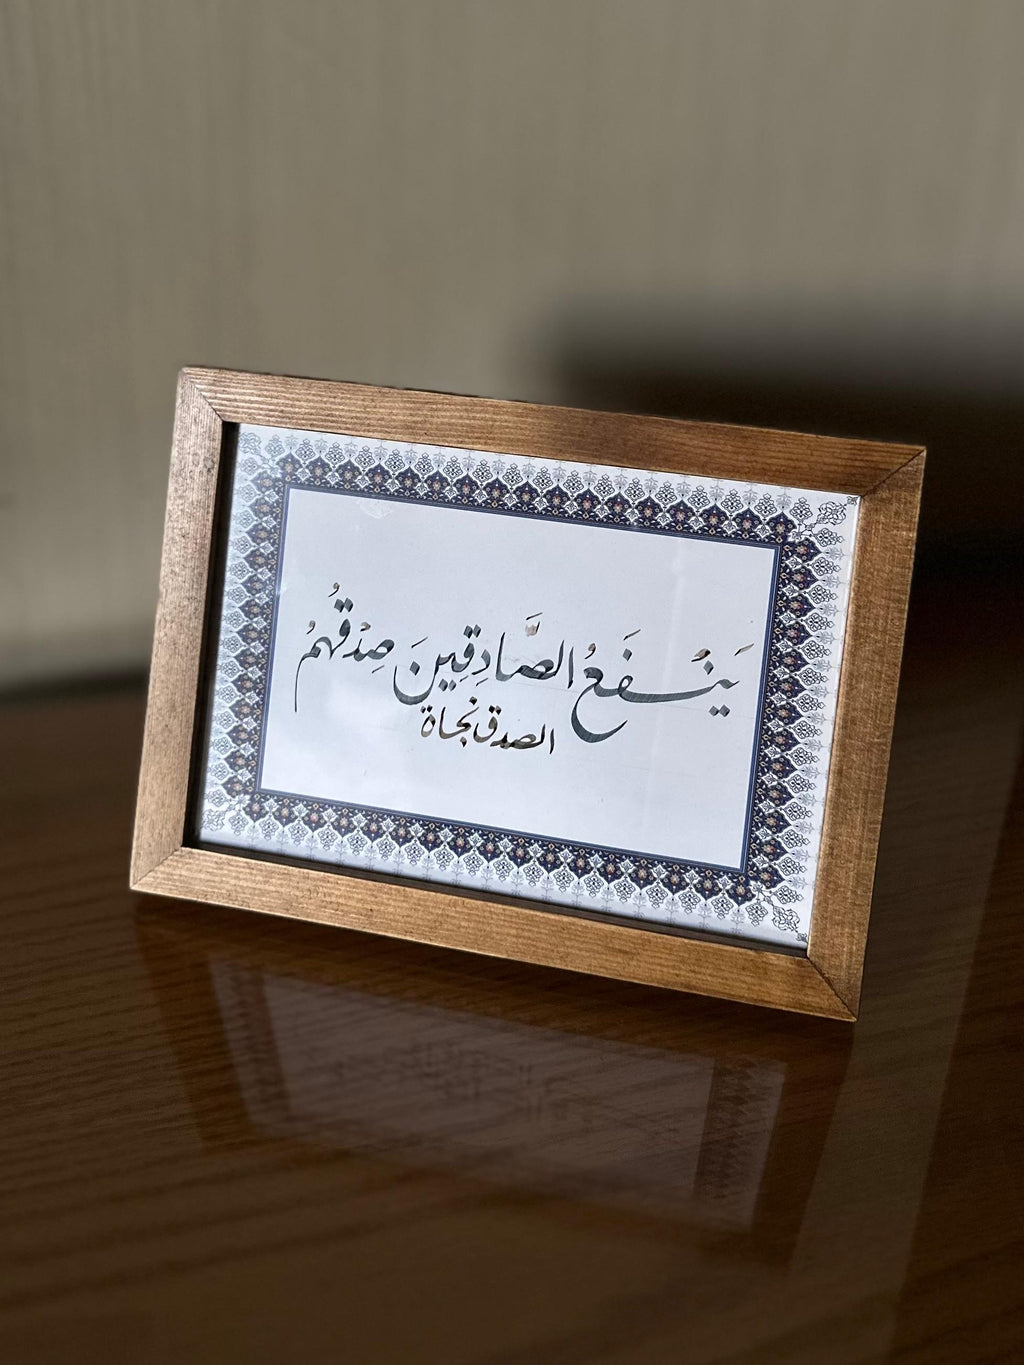 يَنْفَعُ الصَّادِقِينَ صِدْقُهُمْ
الصدق نجاة